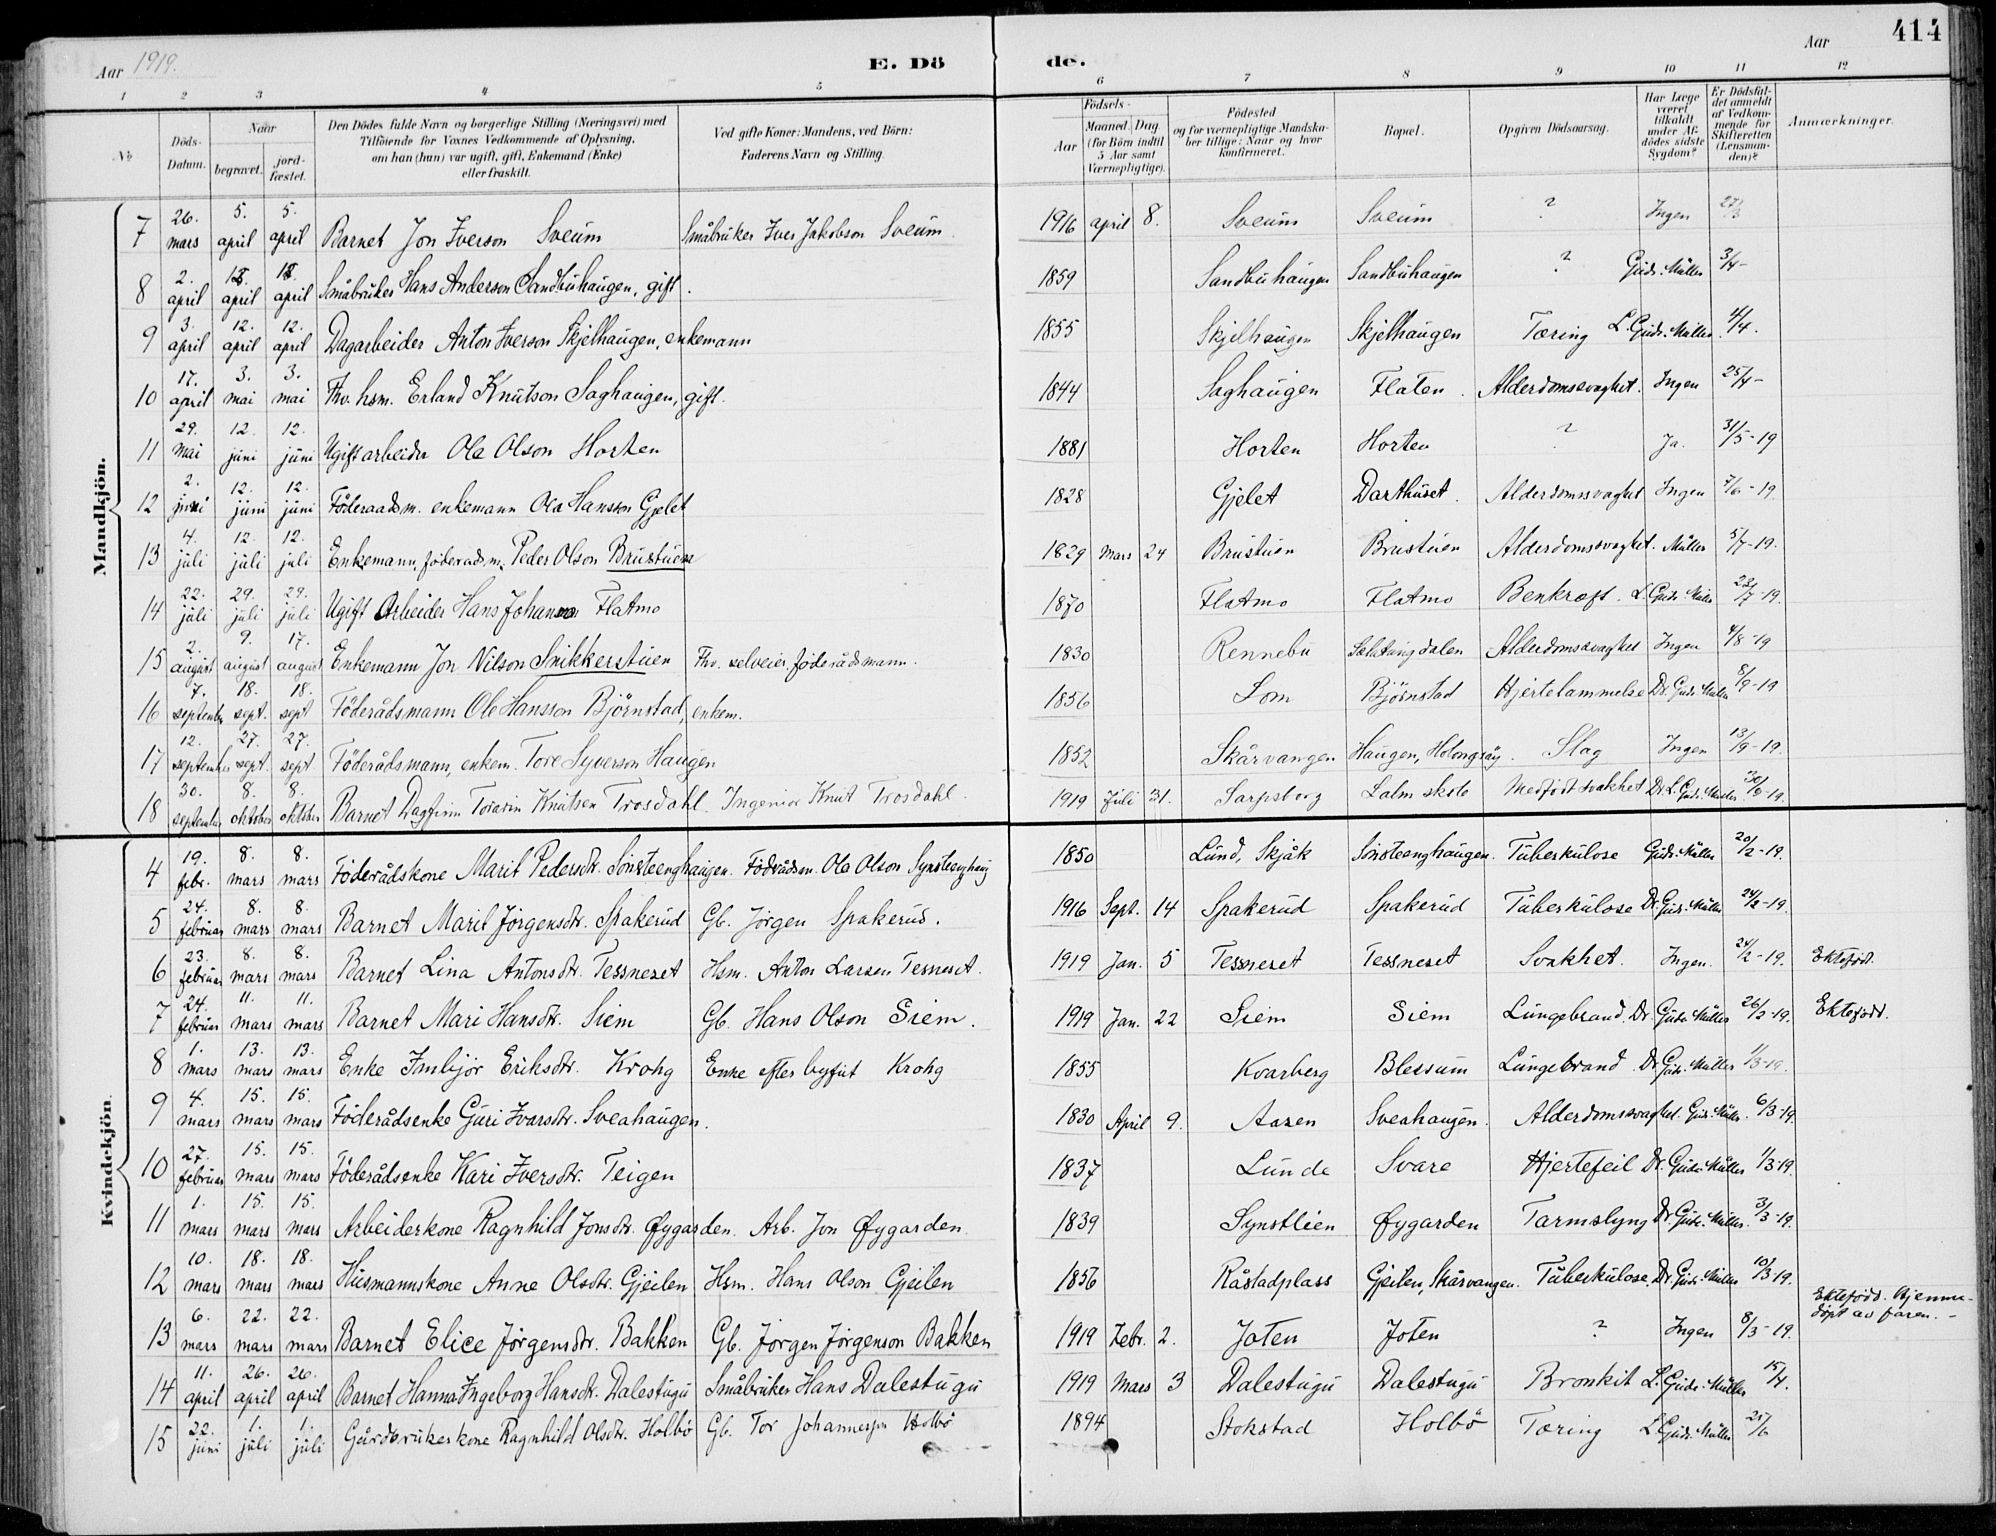 414
Aar 1919. E. Dö de. Aar
1 2 3 4 5 6 7 8 9 10 11 12
No. Döds-Datum. Naar begravet. jordfæstet. Den Dödes fulde Navn og borgerlige Stilling (Næringsvei) med Tilföiende for Voxnes Vedkommende af Oplysning, om han (hun) var ugift, gift, Enkemand (Enke) eller fraskilt. Ved gifte Koner: Mandens, ved Börn: Faderens Navn og Stilling. Födsels- Aar Maaned. Dag. (for Börn indtil 5 Aar samt Værnepligtige). Födested og for værnepligtige Mandskaber tillige: Naar og hvor konfirmeret. Bopæl. Opgiven Dödsaarsag. Har Læge været tilkaldt under Afdödes sidste Sygdom? Er Dödsfaldet anmeldt af Vedkommende for Skifteretten (Lensmanden)? Anmærkninger.
Mandkjön.
7 26. mars 5. april 5. april Barnet Jon Iverson Sveum Småbruker Iver Jakobson Sveum 1916 april 8. Sveum Sveum ? Ingen 27/3
8 2. april 12. april 12. april Småbruker Hans Anderson Sandbuhaugen, gift. 1859 Sandbuhaugen Sandbuhaugen ? Gudr. Müller 3/4-
9 3. april 12. april 12. april Dagarbeider Anton Iverson Skjelhaugen, enkemann 1855 Skjelhaugen Skjelhaugen Tæring L. Gudr. Müller 4/4.
10 17. april 3. mai 3. mai Fhv. hsm. Erland Knutson Saghaugen, gift. 1844 Saghaugen Flaten. Alderdomssvaghet. Ingen 25/4-
11 29. mai 12. juni 12. juni Ugift arbeider Ola Olson Horten 1881 Horten Horten ? Ja. 31/5-19
12 2. juni 12. juni 12. juni Föderaadsm. enkemann Ola Hansson Gjelet 1828 Gjelet Darthuset. Alderdomssvaghet Ingen 7/6-19
13 4. juli 12. juli 12. juli Enkemann, föderadsm. Peder Olson Brustuen 1829 Mars 24 Brustuen Brustuen Alderdomssvaghet. Müller 5/7-19.
14 22. juli 29. juli 29. juli Ugift Arbeider Hans Johanson Flatmo 1870 Flatmo Flatmo Benkræft. L. Gudr. Müller 23/7-19.
15 2. august 9. august 17. august Enkemann Jon Nilson Snikkerstuen Fhv. selveier, föderådsmann. 1830 Rennebu Slatungdalen Alderdomssvaghet Ingen 4/8-19
16 7. september 18. sept. 18. sept Föderådsmann Ole Hansson Björnstad, enkem. 1856 Lom Björnstad Hjertelammelse Dr. Gudr. Müller 8/9-19
17 12. september 27. sept. 27. sept Föderådsmann, enkem. Tore Syverson Haugen 1852 Skårvangen Haugen, Holongsöy. Slag Ingen 13/9-19.
18 30. september 8. oktober 8. oktober Barnet Dagfinn Torarin Knutsen Trosdahl. Ingeniör Knut Trosdahl. 1919 Juli 31. Sarpsborg Lalm skole Medfödt svakhet Dr. L. Gudr. Müller 30/9-19.
Kvindekjön.
4 19. febr. 8. mars 8. mars Föderådskone Marit Pedersdtr. Sönsteenghaugen. Födrådsm. Ola Olson Synsteenghaug 1850 Lund, Skjåk Sönsteenghaugen. Tuberkulose Gudr. Müller 20/2-19.
5 24. februar 8. mars 8. mars Barnet Marit Jörgensdtr. Spakerud Gb. Jörgen Spakerud. 1916 Sept. 14 Spakerud Spakerud Tuberkulose Dr. Gudr. Müller 24/2-19.
6 23. februar 8. mars 8. mars Barnet Lina Antonsdtr. Tessneset Hsm. Anton Larsen Tesneset. 1919 Jan. 5 Tessneset Tessneset Svakhet. Ingen. 24/2-19. Ektefödt.
7 24. februar 11. mars 11. mars Barnet Mari Hansdtr. Siem Gb. Hans Olson Siem. 1919 Jan. 22 Siem Siem Lungebrand. Dr. Gudr. Müller 26/2-19. Ektefödt.
8 1. mars 13. mars 13. mars Enke Imbjör Eriksdtr. Krohg Enke efter byfut Krohg 1855 Kvarberg Blessum Lungebrand. Dr. Gudr. Müller 1/3-19.
9 4. mars 15. mars 15. mars Föderådsenke Guri Ivarsdtr. Sveahaugen. 1830 April 9. Aasen Sveahaugen. Alderdomssvaghet. Gudr. Müller. 6/3-19.
10 27. februar 15. mars 15. mars Föderådsenke Kari Iversdtr. Teigen 1837 Lunde Svare Hjertefeil Dr. Gudr. Müller 1/3-19.
11 1. mars 15. mars 15. mars Arbeiderkone Ragnhild Jonsdtr. Øygarden. Arb. Jon Øygarden. 1839 Synstlien Øygarden Tarmslyng Dr. Gudr. Müller. 3/3-19.
12 10. mars 18. mars 18. mars Husmannskone Anne Olsdtr. Gjeilen Hsm. Hans Olson Gjeilen 1856 Råstadplass Gjeilen, Skårvangen. Tuberkulose. Dr. Gudr. Müller 10/3-19.
13 6. mars 22. mars 22. mars Barnet Elice Jörgensdtr. Bakken Gb. Jörgen Jörgenson Bakken 1919 Febr. 2. Joten Joten ? Ingen 8/3-19. Ektefödt. Hjemmedöpt av faren.-
14 11. april 26. april 26. april Barnet Hanna Ingeborg Hansdtr. Dalestugu Småbruker Hans Dalestugu 1919 Mars 3 Dalestugu Dalestugu Bronkit L. Gudr. Müller 15/4.
15 22. juni 1. juli 1. juli Gårdbrukerkone Ragnhild Olsdtr. Holbö Gb. Tor Johannesen Holbö 1894 Stokstad Holbö Tæring L. Gudr. Müller 25/6